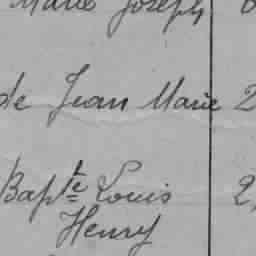 Marie Joseph
de Jean Marie 2
Bapte Louis 2
Henry